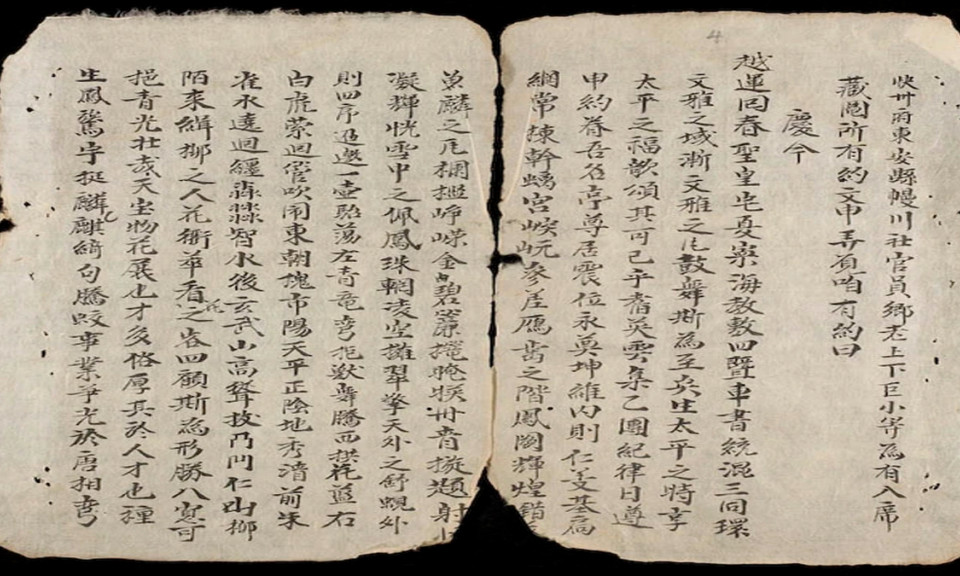 快州府東安縣幔川社官員鄉老上下巨小等為有入席
藏鬮所有約文巾弄頁咱有約曰
慶今
越運回春聖皇屯夏岳海敎敷四暨車書統混三同環
文雅之域漸文雅之化鼓舞斯為至矣生太平之時享
太平之福歌頌其可已乎耆英雲集乙團紀律日遵
申約眷吾名亭尊居震位永奠坤維內則仁義基扃
綱常棟幹螭宮峻屼參差鴈齒之階鳳閣輝煌錯
魚麟之瓦欄檻崢嶸金碧簾擺晻映丹青旋題射
凝輝恍雪中之佩鳳珠輞凌空擁翠拏天外之舒蜺外
則四序迅邀一壺駘蕩左青竜彎拖獻舞騰西拱花藍右
白虎縈迴管吹鬧東朝槐市陽天平正陰地秀清前朱
雀水遶迴纏淼淼智水後玄武山高聳拔乃門仁山柳
陌來緝柳之人花衙萃看花之客四顧斯為形勝八窓可
挹青光壯哉天生物花展也才多俗厚其於人才也種
生鳳鷟字挺麟麒綺句騰蛟事業爭光於唐相彎
4